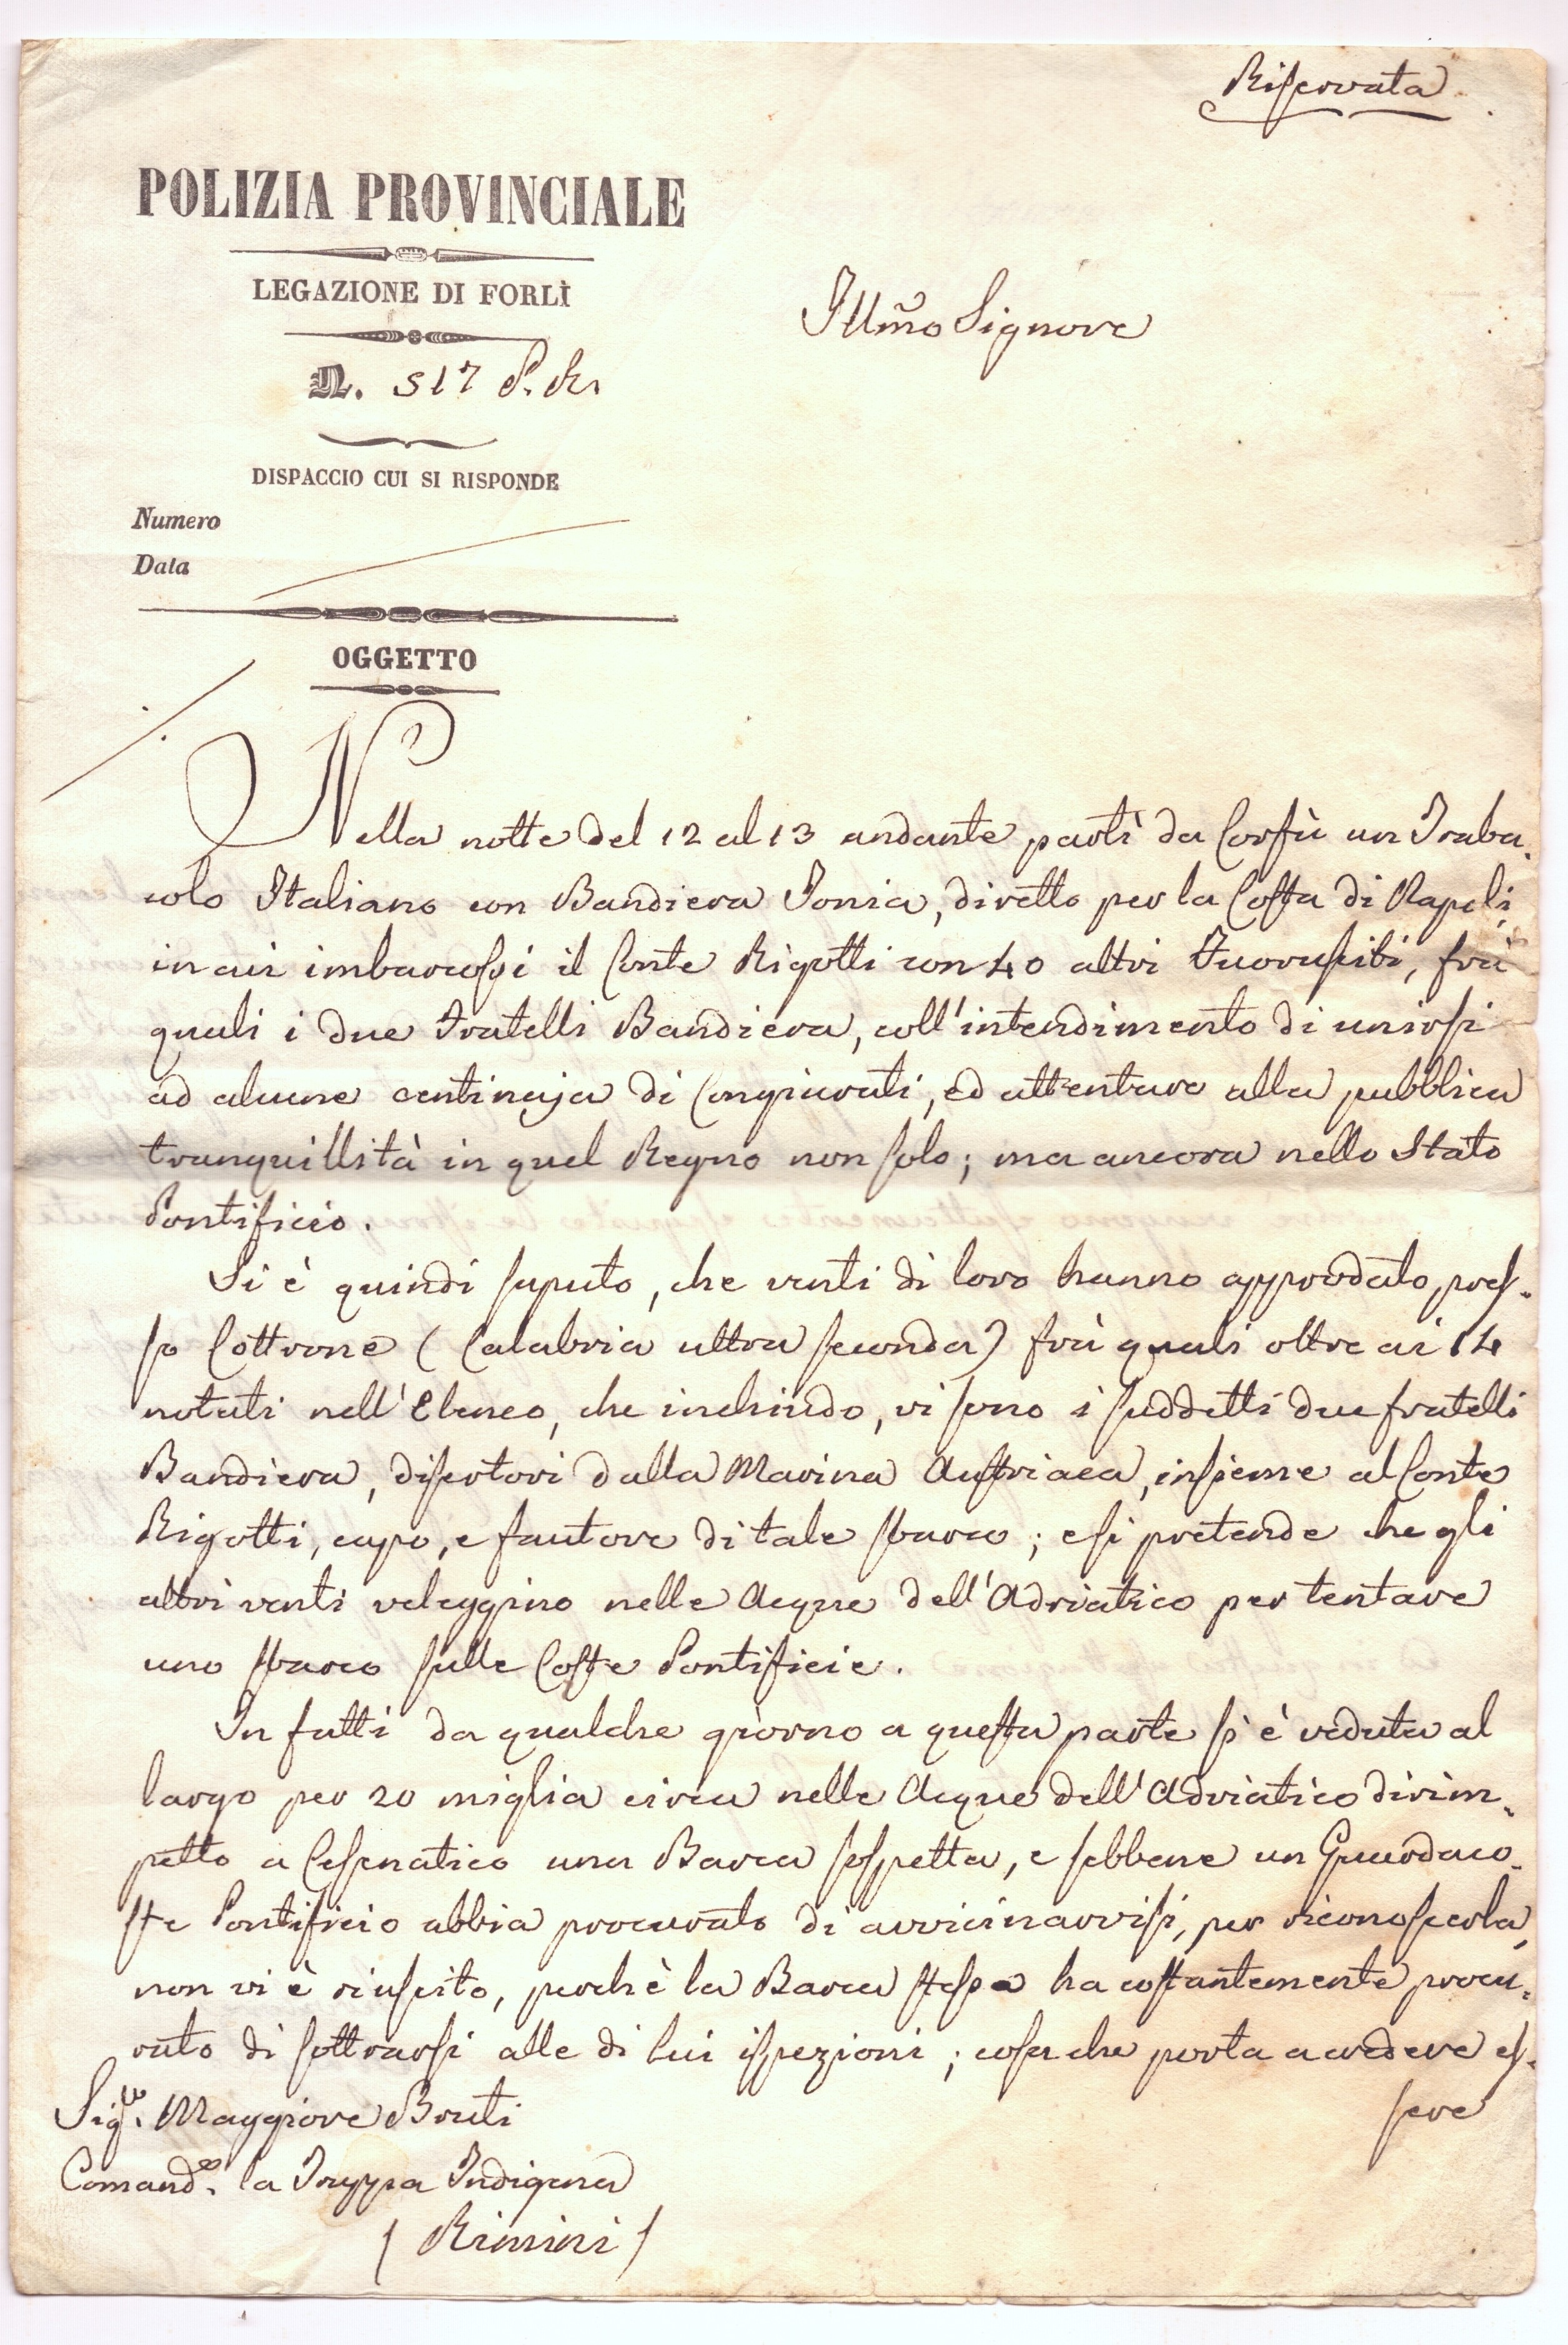 Riservata
POLIZIA PROVINCIALE
LEGAZIONE DI FORLÌ
N. 517 P. R.
DISPACCIO CUI SI RISPONDE
Numero
Data
OGGETTO
Illmo Signore
Nella notte del 12 al 13 andante partì da Corfù un Traba-
colo Italiano con Bandiera Jonia, diretto per la Costa di Napoli,
in cui imbarcossi il Conte Rigotti con 40 altri Fuorusciti, frà
quali i due Fratelli Bandiera, coll'intendimento di unirsi
ad alcune centinaja di Congiurati, ed attentare alla pubblica
tranquillità in quel Regno non solo; ma ancora nello Stato
Pontificio.
Si è quindi saputo, che venti di loro hanno approdato pres-
so Cottrone (Calabria ultra seconda) frà quali oltre ai 14
notati nell'Elenco, che inchiudo, vi sono i suddetti due fratelli
Bandiera, disertori dalla Marina Austriaca, insieme al Conte
Rigotti, capo, e fautore di tale sbarco; e si pretende che gli
altri venti veleggino nelle Acque dell'Adriatico per tentare
uno sbarco sulle Coste Pontificie.
In fatti da qualche giorno a questa parte si è veduta al
largo per 20 miglia circa nelle Acque dell'Adriatico dirim-
petto a Cesenatico una Barca sospetta, e sebbene un Guardaco-
ste Pontificio abbia procurato di avvicinarvisi, per riconoscerla,
non vi è riuscito, perchè la Barca stessa ha costantemente procu-
rato di sottrarsi alle di lui ispezioni; cosa che porta a credere es-
sere
Sigr. Maggiore Bruti
Comande. la Truppa Indigena
(Rimini)